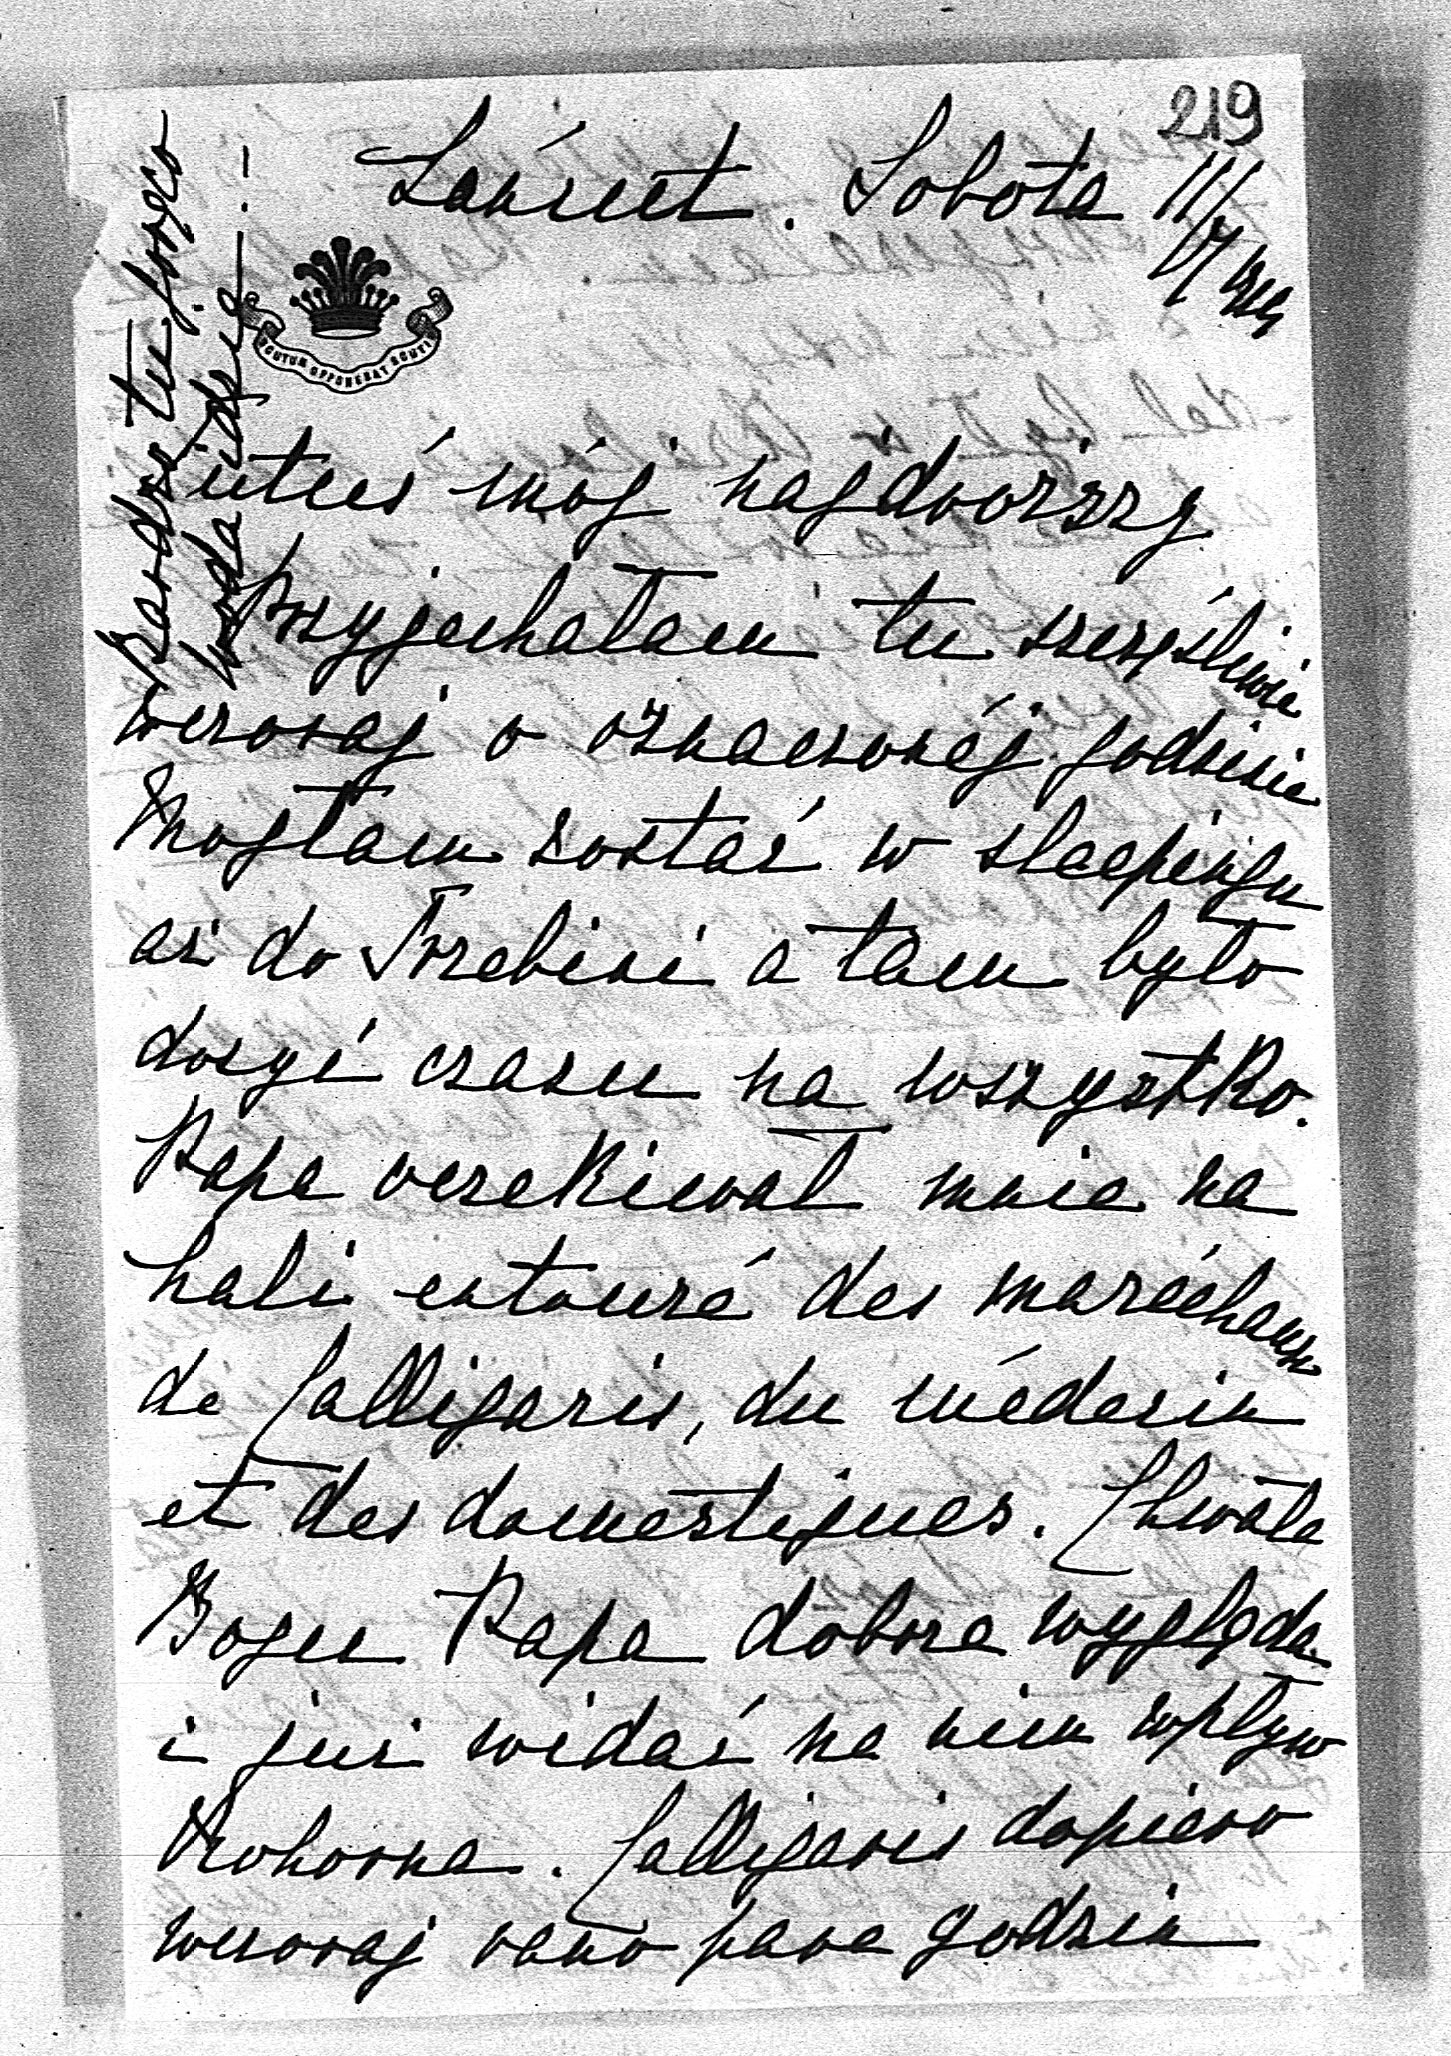 219
Łańcut. Sobota 11/
SCUTUM OPPONEBAT SCUTI
Bardzo tu gorąco
Lituś mój najdroższy
Przyjechałam tu szczęśliwie
wczoraj o oznaczonéj godzinie
Mogłam zostać w sleepingu
aż do Trzebini a tam było
dosyć czasu na wszystko.
Papa oczekiwał mnie na
hali entouré des maréchaux
de Calligaris, du médecin
et des domestiques. Chwała
Bogu Papa dobrze wygląda
i już widać na nim wpływ
Mohorna. Calligaris dopiero
wczoraj rano parę godzin